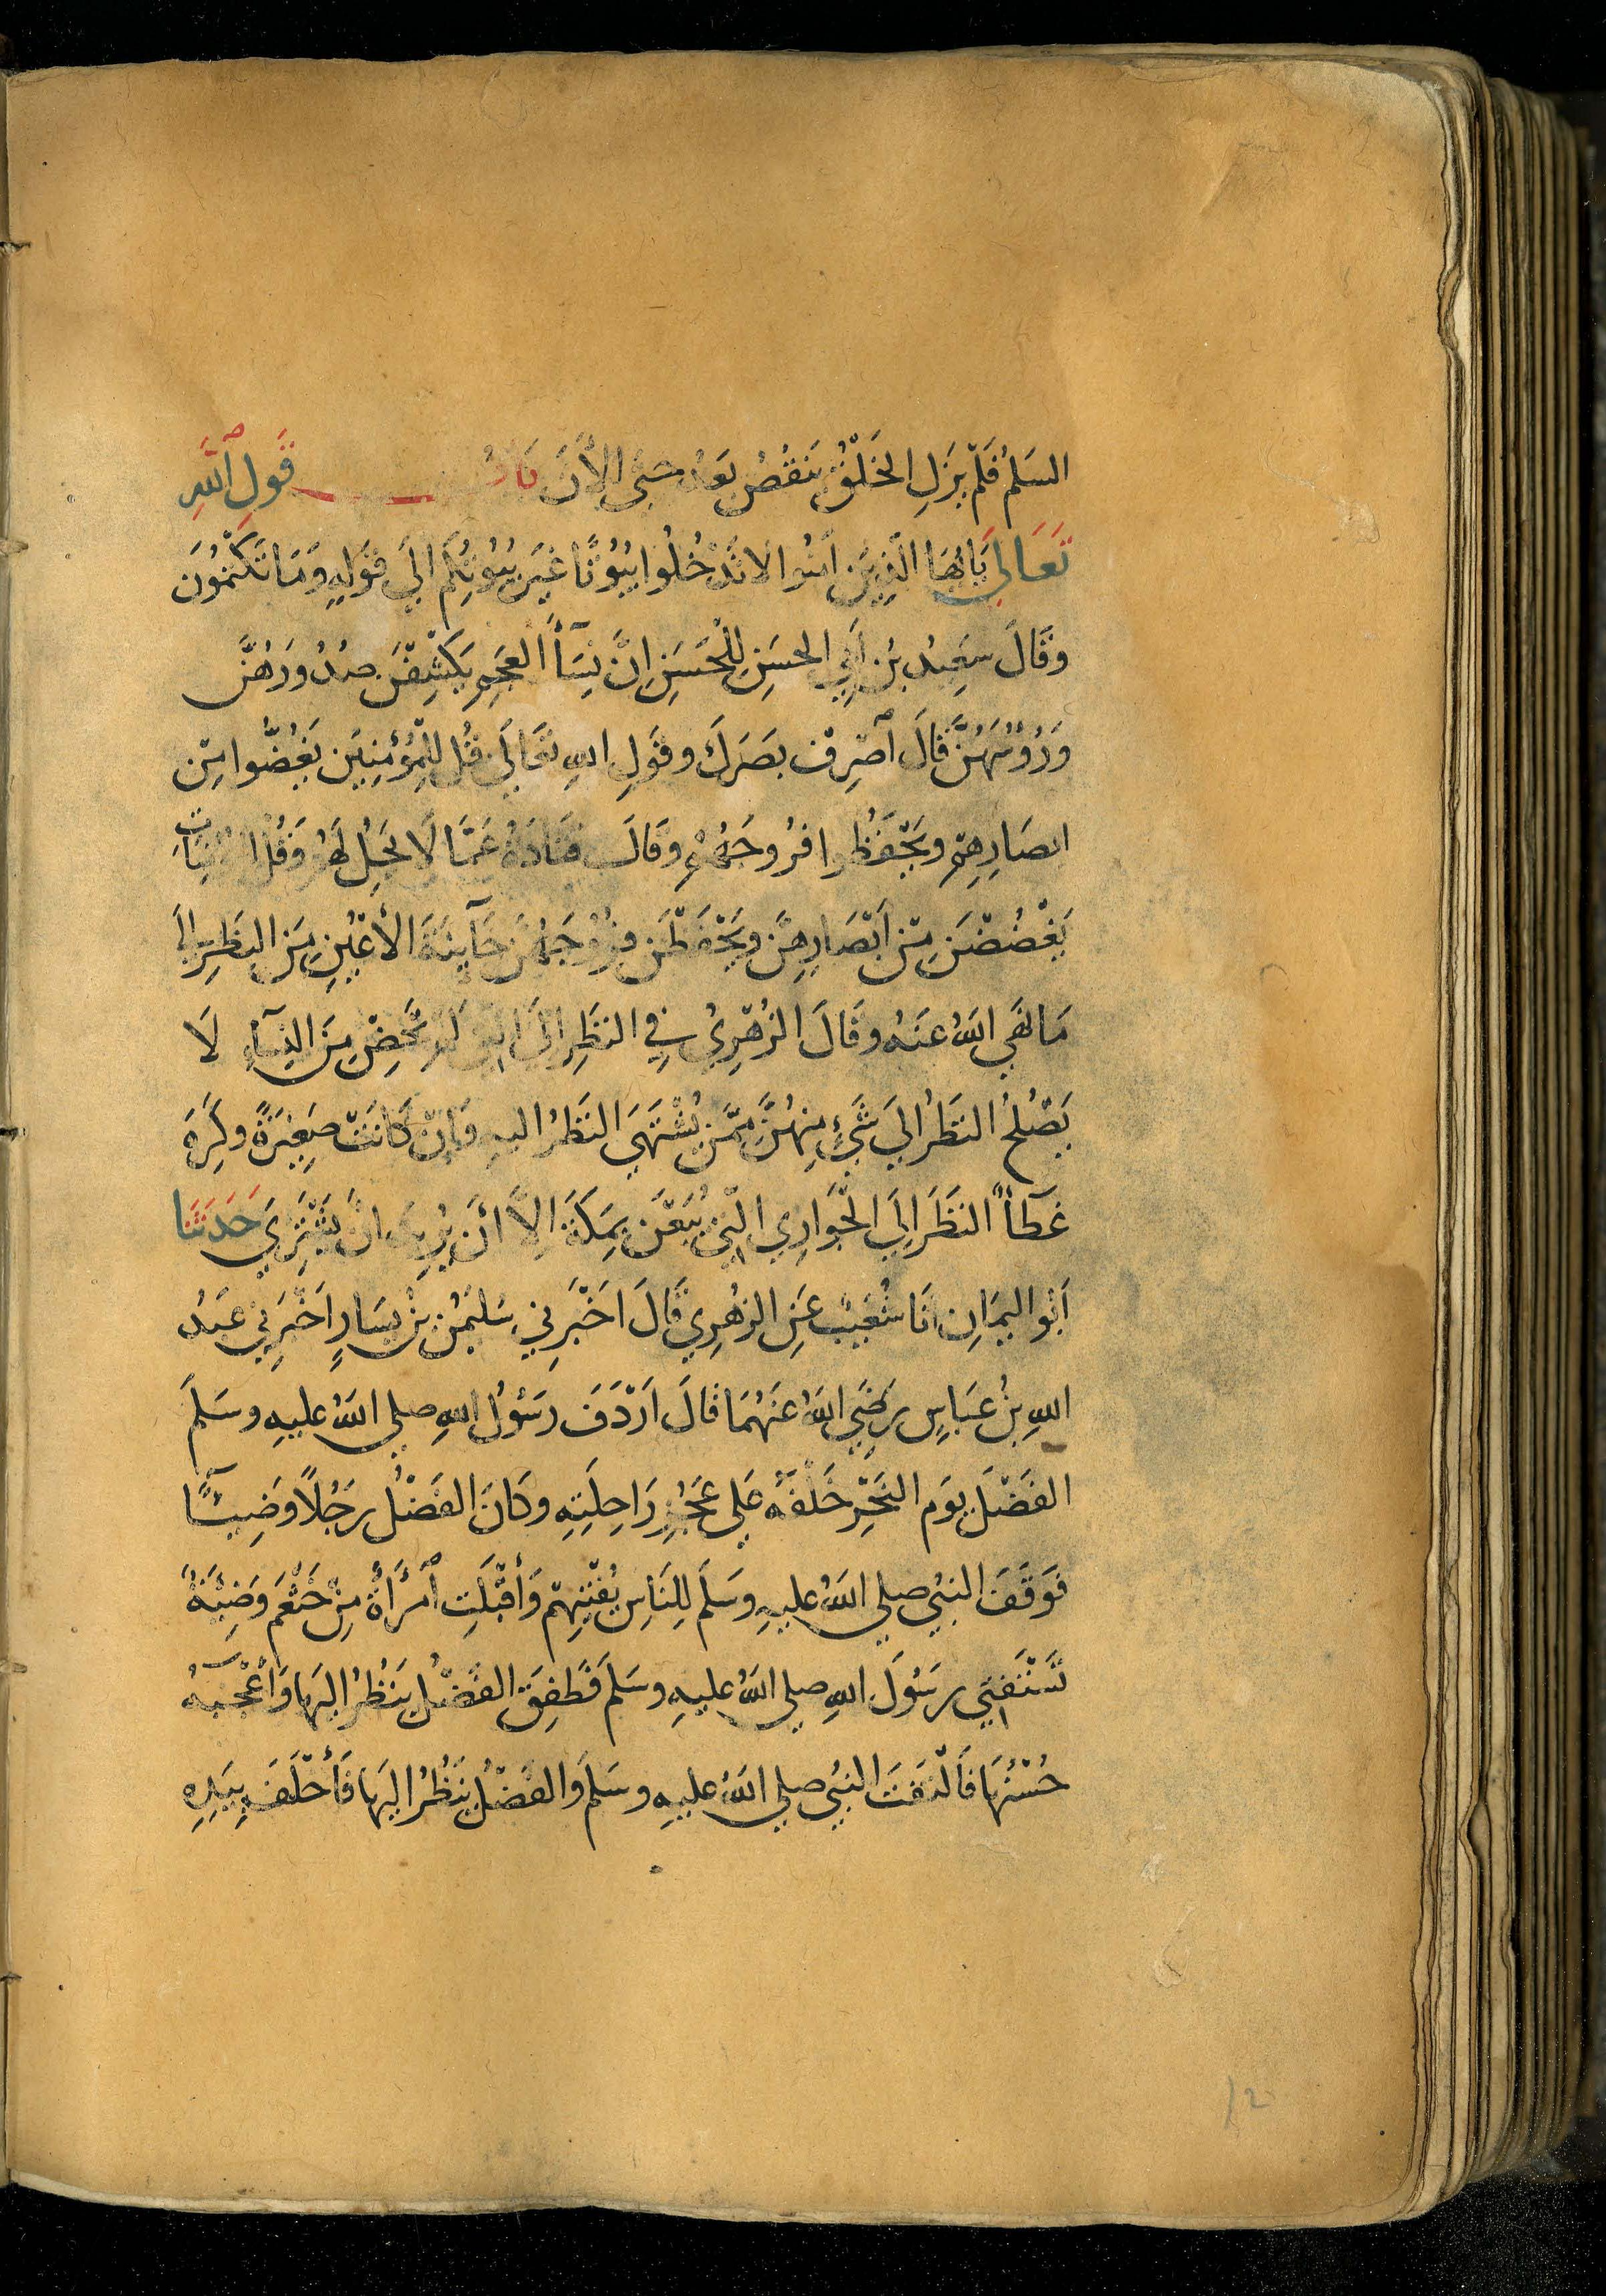 السَلمُ فَلَمْ يَزَلِ الخَلْقُ يَنقُصُ بَعدُ حَتى الأَنَ بَابُ قَولِ اللهِ
تَعَالي يَايُهَا الَّذِينَ اٰمَنُوا لَا تَدْخُلُوا بُيُوتًا غَيرَ بُيُوتِكُم الِي قَولِهِ وَمَا تَكْتُمُونَ
وقَالَ سَعِيدُ بنُ أَبِي الحسَنِ لِلْحَسَنِ اِنَّ نِسَآأَ العَجمِ يَكْشِفْنَ صُدُورَهُنَّ
وَرُؤُسَهُنَّ قَالَ اَصْرِفْ بَصَرَكَ وقَولِ اللهِ تعَالَى قُل لِلْمُؤْمِنِينَ يَغُضُّوا مِن
ابصَارِهِم ويَحْفَظُوا فُرُوجَهُم وقَالَ قتَادَةُ عَمَّا لَا يَحِلُ لَهُم وَقُل لِلمُؤْمِنَاتِ
يَغْضُضْنَ مِنْ اَبْصَارِهِنَّ ويَحْفَظْنَ فُرُوجَهُنَّ خَآيِنَةَ الأَعْيُنِ مِنَ النظَرِ اِلَى
مَا نَهَى اللهُ عَنهُ وقَالَ الزُهْرِيُ فِي النظَرِ اِلَى الّتِي لَم تَحِضْ مِنَ النِسَآءِ لَا
يَصْلُحُ النَظَرُ الِي شَيءٍ مِنهُنَّ مِمَّن يُشْتَهَى النَظَرُ اليهِ وَاِنْ كَانَتْ صَغِيرَةً وكَرِهَ
عَطآأٌ النَظَرَ اِلَى الجَوَارِي الّتِي يُبَعْنَ بِمَكَةَ اِلَّا أَن يُرِيدَ أنْ يَشْتَرِيَ حَدثَنَا
اَبُو اليمَانِ انَا شُعَيبٌ عَنِ الزهُرِي قَالَ اَخبَرَنِي سُليمٰنُ بْنُ يَسَارٍ اَخْبَرَنِي عَبدُ
اللهِ بنُ عَبَاسٍ رَضِيَ اللهُ عَنهُمَا قَالَ اَرْدَفَ رَسُولُ اللهِ صلى اللهُ عليهِ وسَلَمَ
الفَضْلَ يَومَ النَحْرِ خَلْفَهُ عَلى عَجُزِ رَاحِلَتِهِ وكَانَ الفَضْلُ رَجُلًا وَضِيئًا
فَوقَفَ النبيُ صلى اللهُ عليهِ وسَلَمَ لِلنَاسِ يُفْتِيهِم وَأَقبَلَتِ اُمْرَأَةٌ مِنْ خَثْعَم وَضِيئَةٌ
تَسْتَفْتِي رسُولَ اللهِ صلى اللهُ عليهِ وسَلَمَ فَطَفِقَ الفَضْلُ يَنظُرُ اليهَا وَأَعْجَبَهُ
حُسْنُهَا فَالْتَفَتَ النبيُ صلى اللهُ عليهِ وسَلَمَ والفَضْلُ يَنظُرُ اليهَا فَأَخْلَفَ بِيَدِهِ